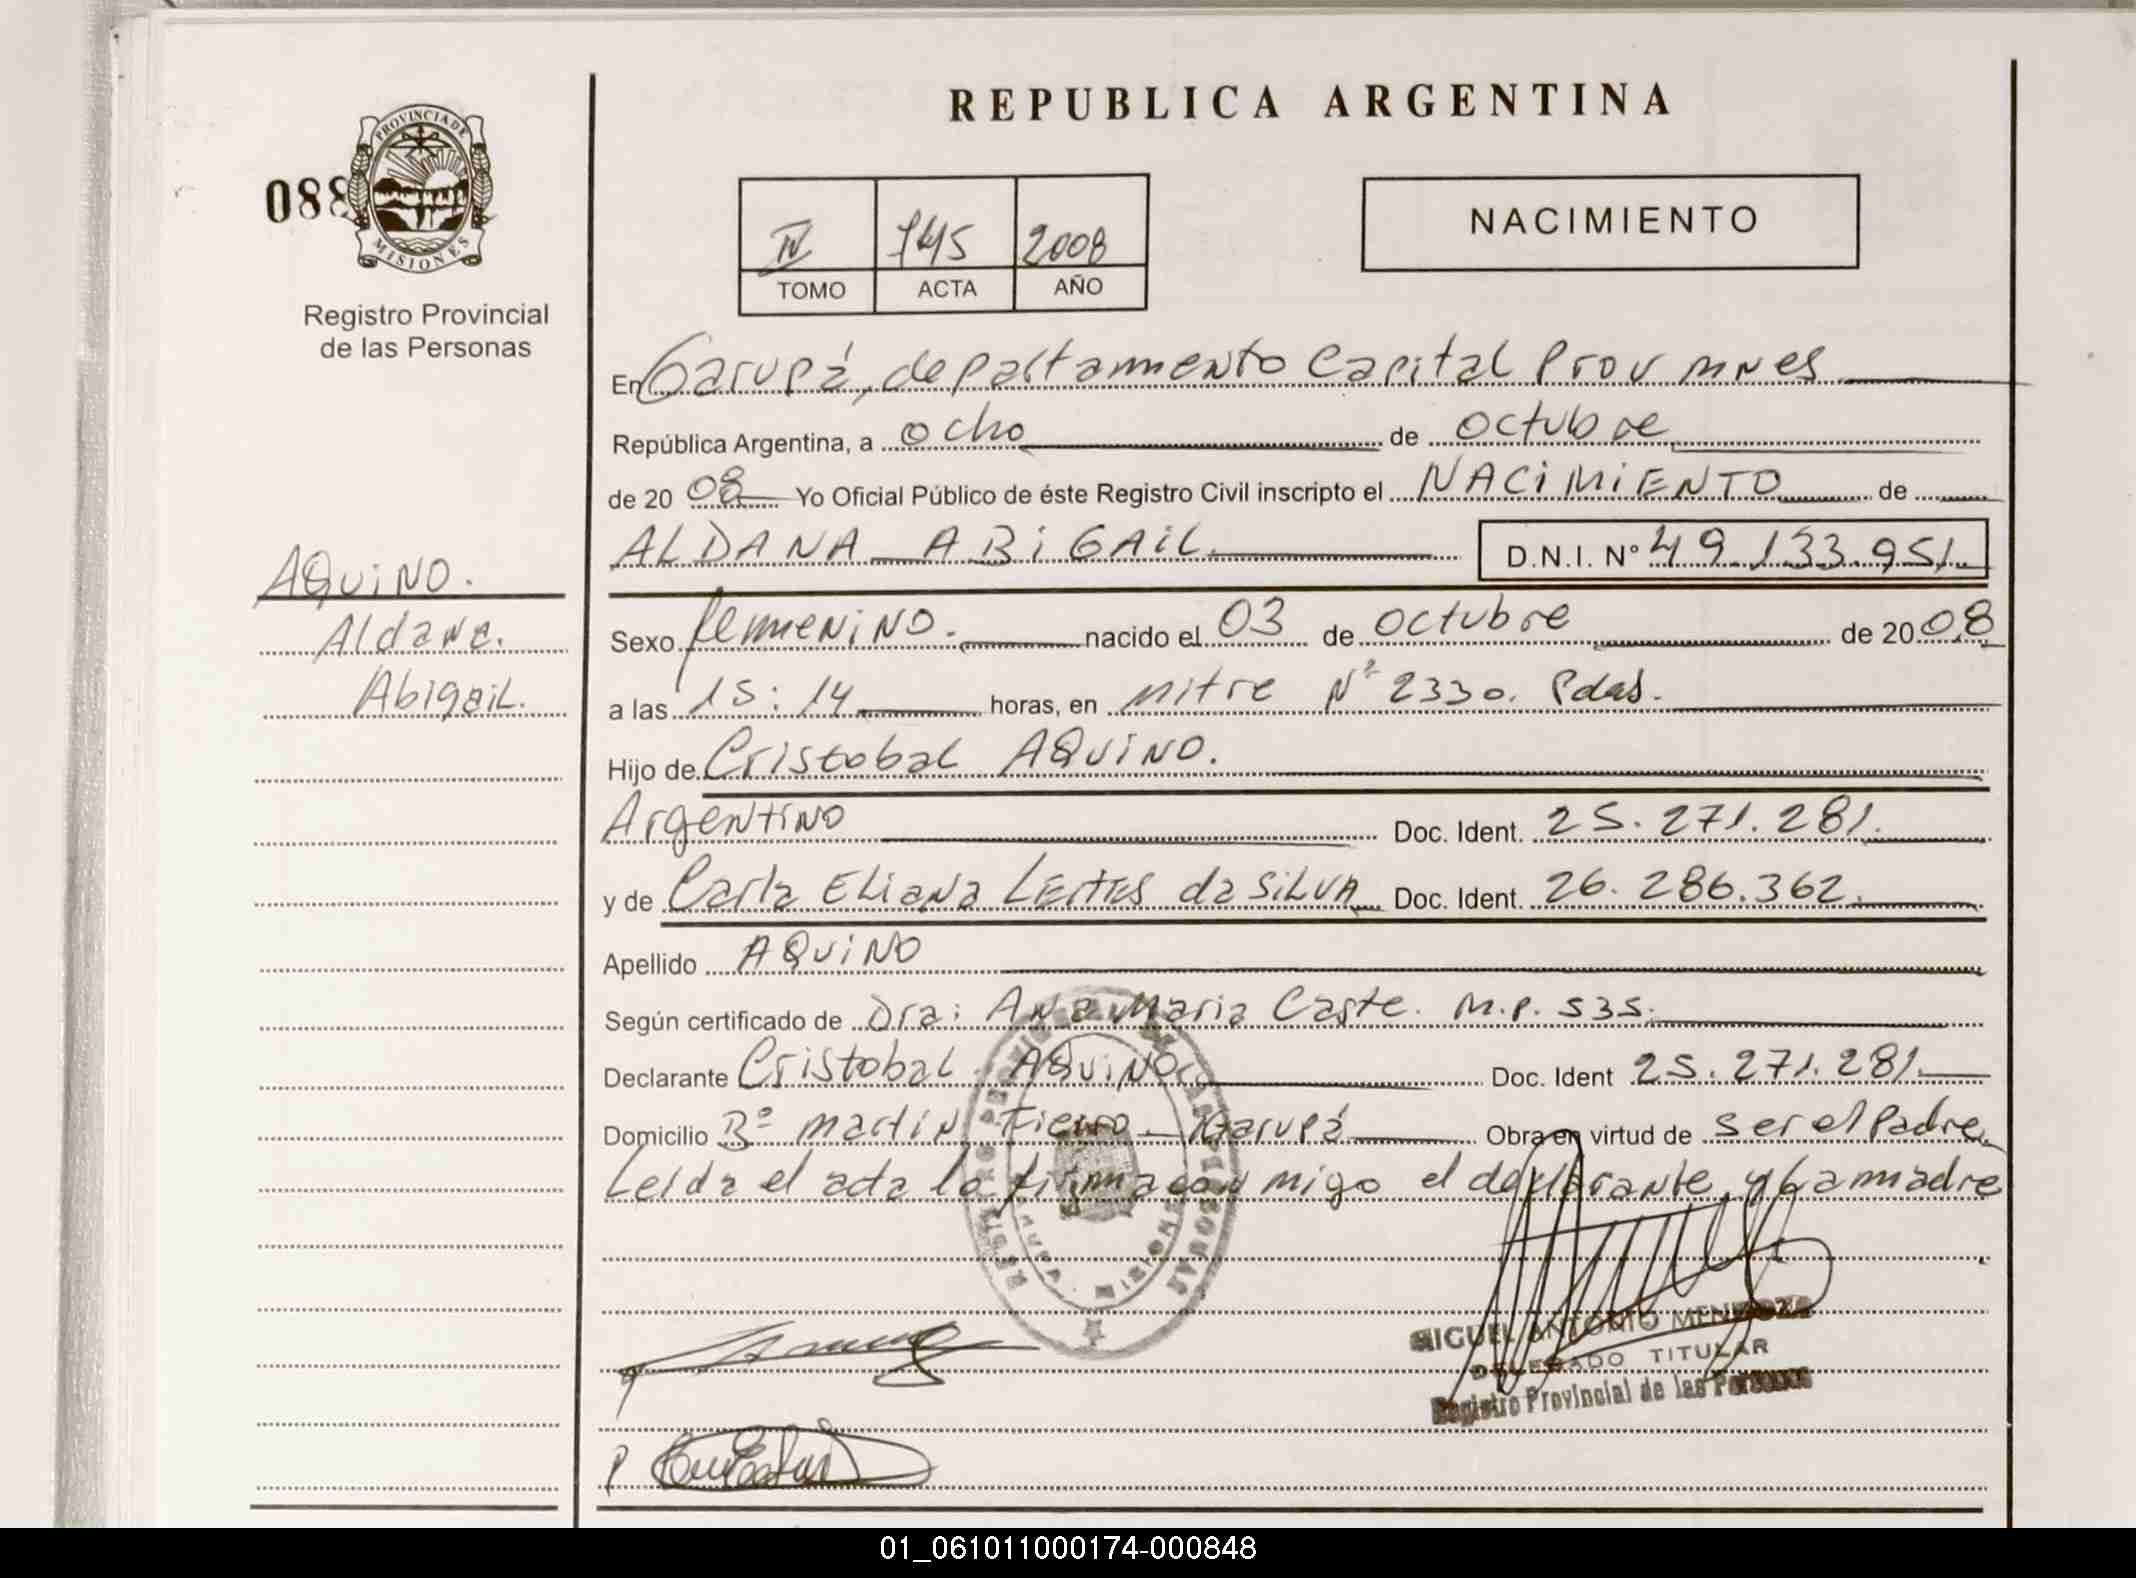 REPUBLICA ARGENTINA
088
PROVINCIA DE
MISIONES
Registro Provincial
de las Personas
IV 745 2008
TOMO ACTA AÑO
NACIMIENTO
En Garupá, departamento Capital Prov mnes
República Argentina, a ocho de octubre
de 2008 Yo Oficial Público de éste Registro Civil inscripto el NACIMIENTO de
ALDANA ABIGAIL D.N.I. N° 49.133.951.
AQUINO.
Aldana.
Abigail.
Sexo femenino. nacido el 03 de octubre de 2008
a las 15:14 horas, en mitre N° 2330. Pdas.
Hijo de Cristobal AQUINO.
Argentino Doc. Ident. 25.271.281.
y de Carla Eliana LEITES da SILVA Doc. Ident. 26.286.362.
Apellido AQUINO
Según certificado de Dra: Ana Maria Caste. M.P. 535.
Declarante Cristobal AQUINO Doc. Ident 25.271.281.
Domicilio Bº Martín Fierro - Garupá Obra en virtud de ser el Padre
Leida el acta la firma con migo el declarante y la madre
REGISTRO PROVINCIAL DE LAS PERSONAS
MISIONES
MIGUEL ANTONIO MENDOZA
DELEGADO TITULAR
Registro Provincial de las Personas
01_061011000174-000848